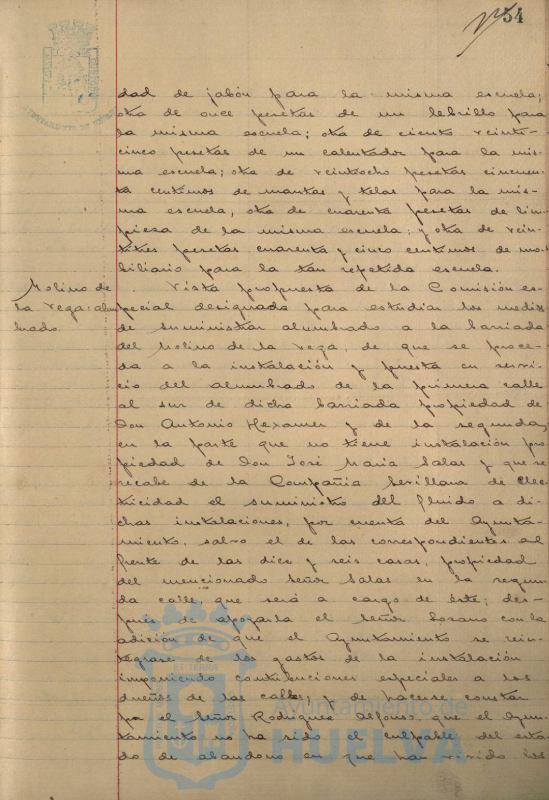 54
dad de jabón para la misma escuela;
otra de once pesetas de un lebrillo para
la misma escuela; otra de ciento veinti-
cinco pesetas de un calentador para la mis-
ma escuela; otra de veintiocho pesetas cincuen-
ta centimos de mantas y telas para la mis-
ma escuela, otra de cuarenta pesetas de lim-
pieza de la misma escuela; y otra de vein-
titres pesetas cuarenta y cinco centimos de mo-
biliario para la tan repetida escuela.
Molino de
la Vega: alum
brado.
Vista propuesta de la Comisión es-
pecial designada para estudiar los medios
de suministrar alumbrado a la barriada
del Molino de la Vega, de que se proce-
da a la instalación y puesta en servi-
cio del alumbrado de la primera calle
al sur de dicha barriada propiedad de
Don Antonio Hexamer y de la segunda,
en la parte que no tiene instalación pro-
piedad de Don José Maria Salas y que se
recabe de la Compañia Sevillana de Elec-
tricidad el suministro del fluido a di-
chas instalaciones, por cuenta del Ayunta-
miento, salvo el de las correspondientes al
frente de las diez y seis casas, propiedad
del mencionado Señor Salas en la segun-
da calle, que será a cargo de éste; des-
pués de apoyarla el Señor Lozano con la
adición de que el Ayuntamiento se rein-
tegrase de los gastos de la instalación
imponiendo contribuciones especiales a los
dueños de las calles, y de hacerse constar
por el Señor Rodríguez Alfonso, que el Ayun-
tamiento no ha sido el culpable del esta-
do de abandono en que ha vivido
Ayuntamiento de
HUELVA